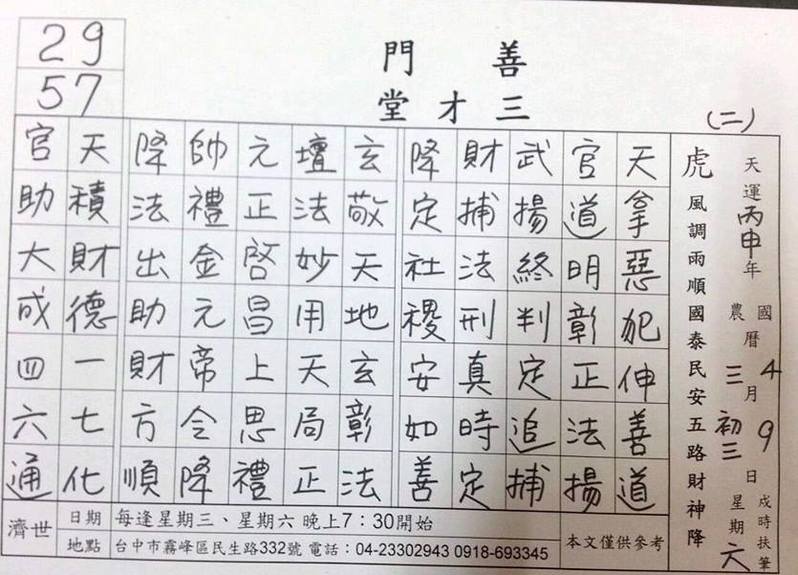 29
57
善門
三才堂
(二)
天運丙申年 國農曆 4三月 9初三日 星期六 戌時扶筆
虎 風調雨順國泰民安五路財神降
天拿惡犯伸善道
官道明彰正法揚
武揚終判定追捕
財捕法刑真時定
降定社稷安如善
玄敬天地玄彰法
壇法妙用天局正
元正啓昌上思禮
帥禮金元帝令降
降法出助財方順
天積財德一七化
官助大成四六通
濟世
日期 每逢星期三、星期六 晚上7：30開始
地點 台中市霧峰區民生路332號 電話：04-23302943 0918-693345
本文僅供參考